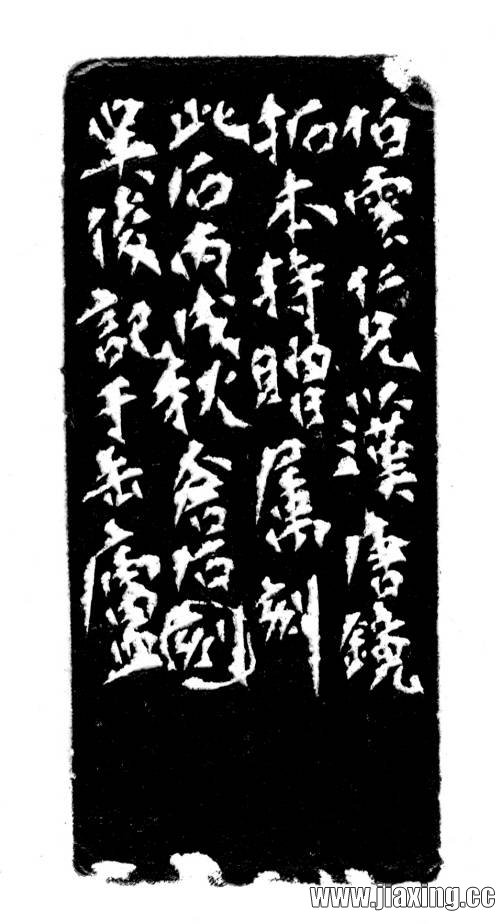 伯雲仁兄以漢唐鏡
拓本持贈屬刻
此石丙戌秋倉石刻
畢後記于缶廬
www.jiaxing.cc